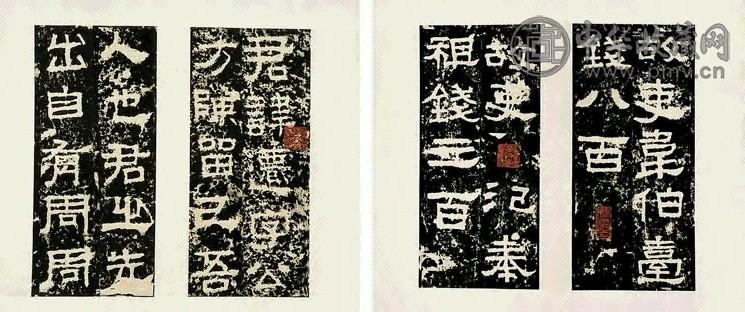 故吏韋伯臺
錢八百
故吏氾奉
祖錢三百
君諱遷字公
方陳留己吾
人也君之先
出自有周周
中华收藏网
www.pmv.cn